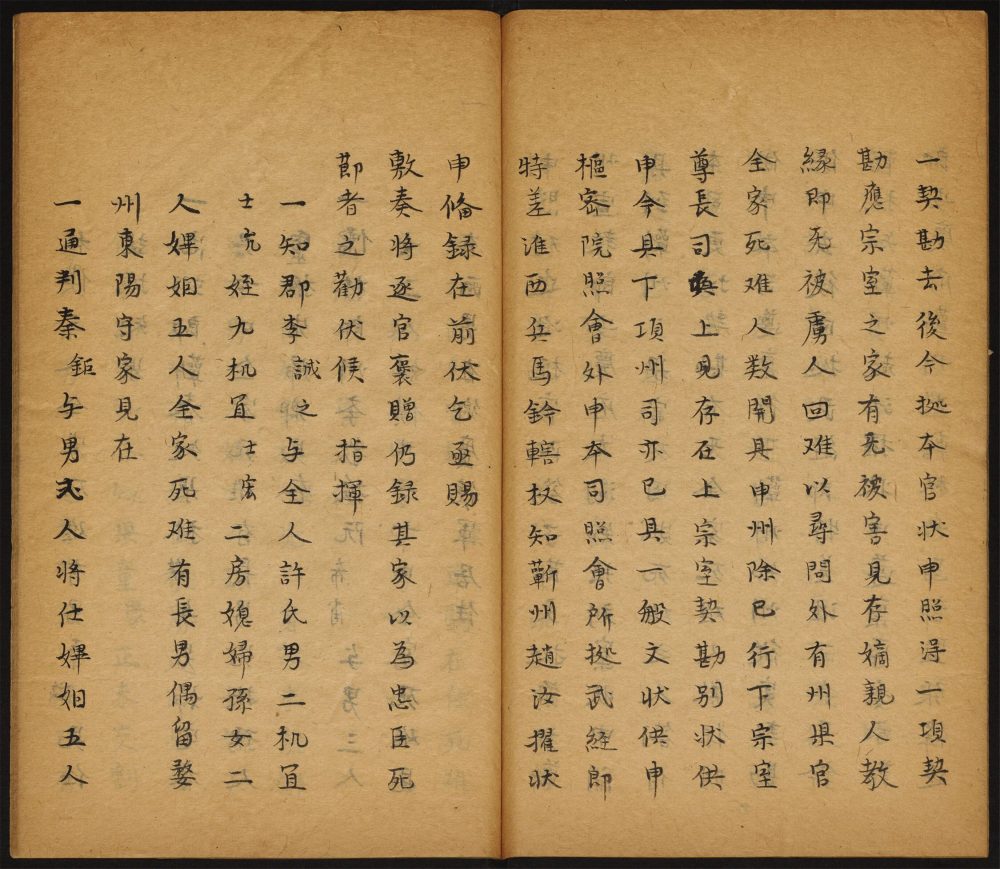 一契勘去後今㩀本官状申照得一項契
勘應宗室之家有无被害見存嫡親人教
縁即死被虜人回难以尋問外有州果官
全家死难人数開具申州除已行下宗室
尊長司喚上見存在上宗室契勘别状供
申今具下項州司亦已具一般文状供申
樞密院照會外申本司照會所㩀武経郎
特差淮西兵馬鈐轄权知蘄州趙汝擢状
申俻録在前伏乞亟賜
敷奏将逐官褒贈仍録其家以為忠臣死
節者之勸伏候指揮
一知郡李誠之与全人許氏男二机宜
士宄姪九机宜士宏二房媳婦孫女二
人婢妲五人全家死难有長男偶留婺
州東陽守家見在
一通判秦鉅与男人将仕婢妲五人